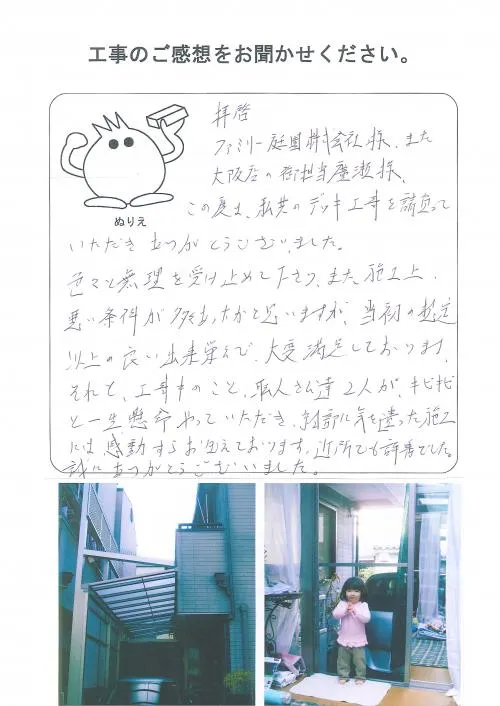 工事のご感想をお聞かせください。
拝啓
ファミリー庭園株式会社様、また
大阪店の御担当廣瀬様、
ぬりえ
この度は、私共のデッキ工事を請負って
いただきありがとうございました。
色々と無理を受け止めて下さり、また、施工上、
悪い条件が多かったかと思いますが、当初の想定
以上の良い出来栄えで、大変満足しております。
それと、工事中のこと、職人さん達2人が、キビキビ
と一生懸命やっていただき、細部に気を遣った施工
には感動すらお覚えております。近所でも評善でした。
誠にありがとうございました。